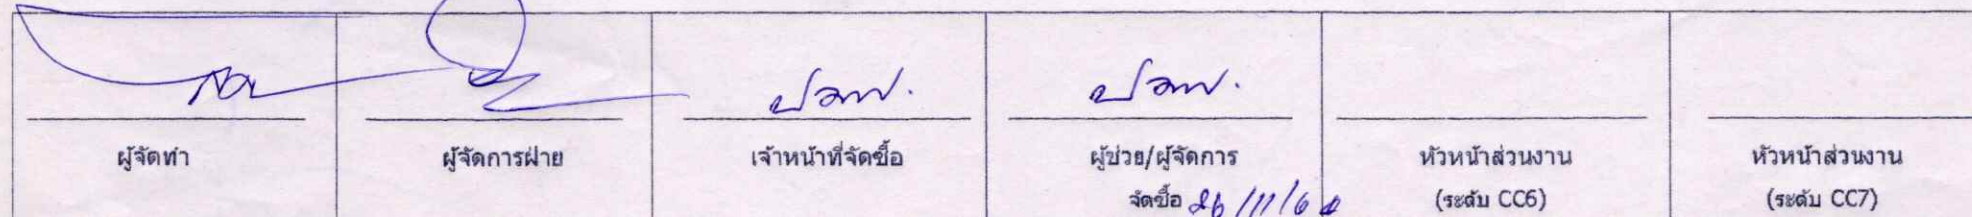 ผู้จัดทำ
ผู้จัดการฝ่าย
เจ้าหน้าที่จัดซื้อ
ผู้ช่วย/ผู้จัดการ
จัดซื้อ
หัวหน้าส่วนงาน
(ระดับ CC6)
หัวหน้าส่วนงาน
(ระดับ CC7)